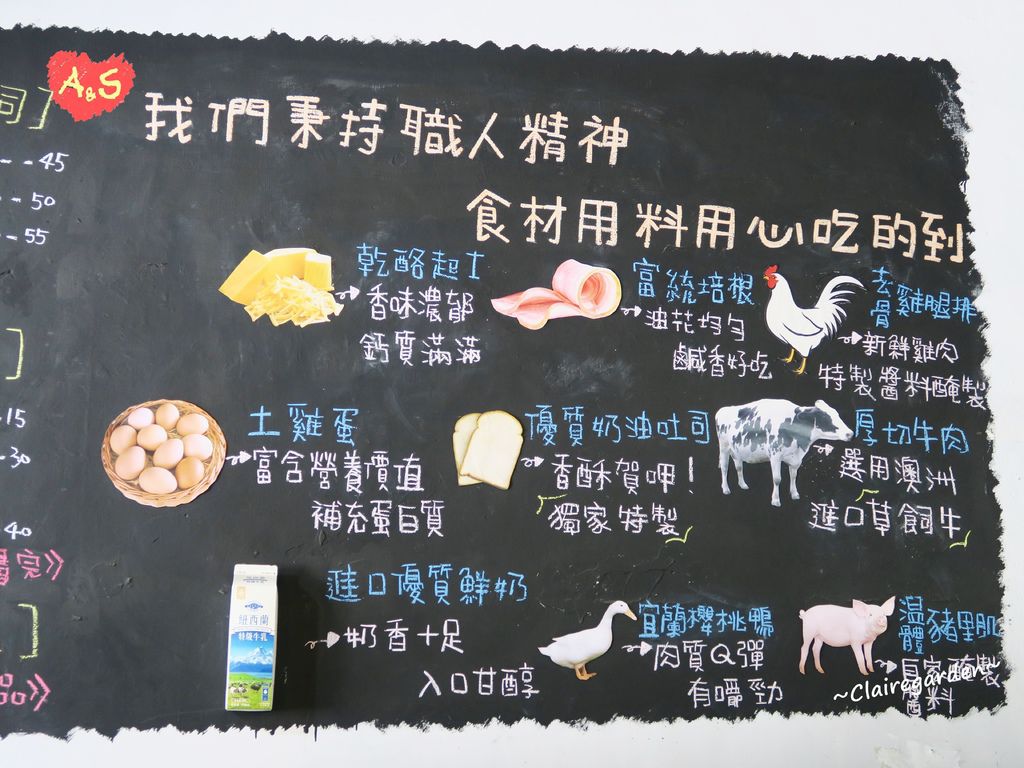 A&S
我們秉持職人精神
食材用料用心吃的到
司]
--45
--50
--55
]
.15
-30
40
售完》
]
品》
乾酪起士
香味濃郁
鈣質滿滿
富統培根
油花均勻
鹹香好吃
去骨雞腿排
新鮮雞肉
特製醬料醃製
土雞蛋
富含營養價值
補充蛋白質
優質奶油吐司
香酥賀呷!
獨家特製
厚切牛肉
選用澳洲
進口草飼牛
進口優質鮮奶
奶香十足
入口甘醇
紐西蘭
特級牛乳
宜蘭櫻桃鴨
肉質Q彈
有嚼勁
温體豬里肌
自家醃製
醬料
~Clairegarden~